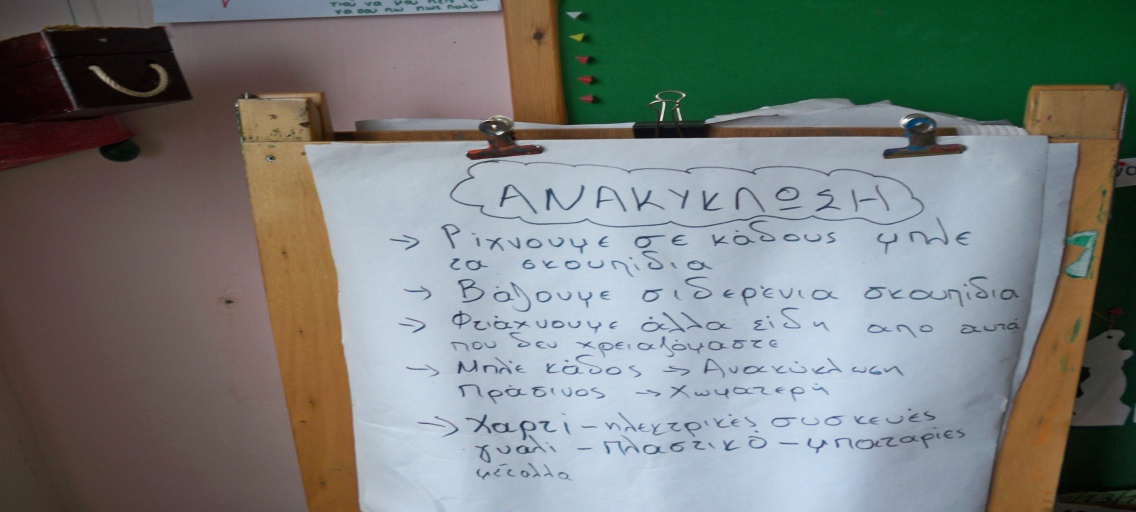 που να μου πεις
να σου πω πως πολύ
ΑΝΑΚΥΚΛΩΣΗ
→ Ρίχνουμε σε κάδους μπλε
τα σκουπίδια
→ Βάζουμε σιδερένια σκουπίδια
→ Φτιάχνουμε άλλα είδη απο αυτά
που δεν χρειαζόμαστε
→ Μπλέ κάδος → Ανακύκλωση
Πράσινος → Χωματερή
→ Χαρτί - ηλεκτρικές συσκευές
γυαλί - πλαστικό - μπαταρίες
μέταλλα